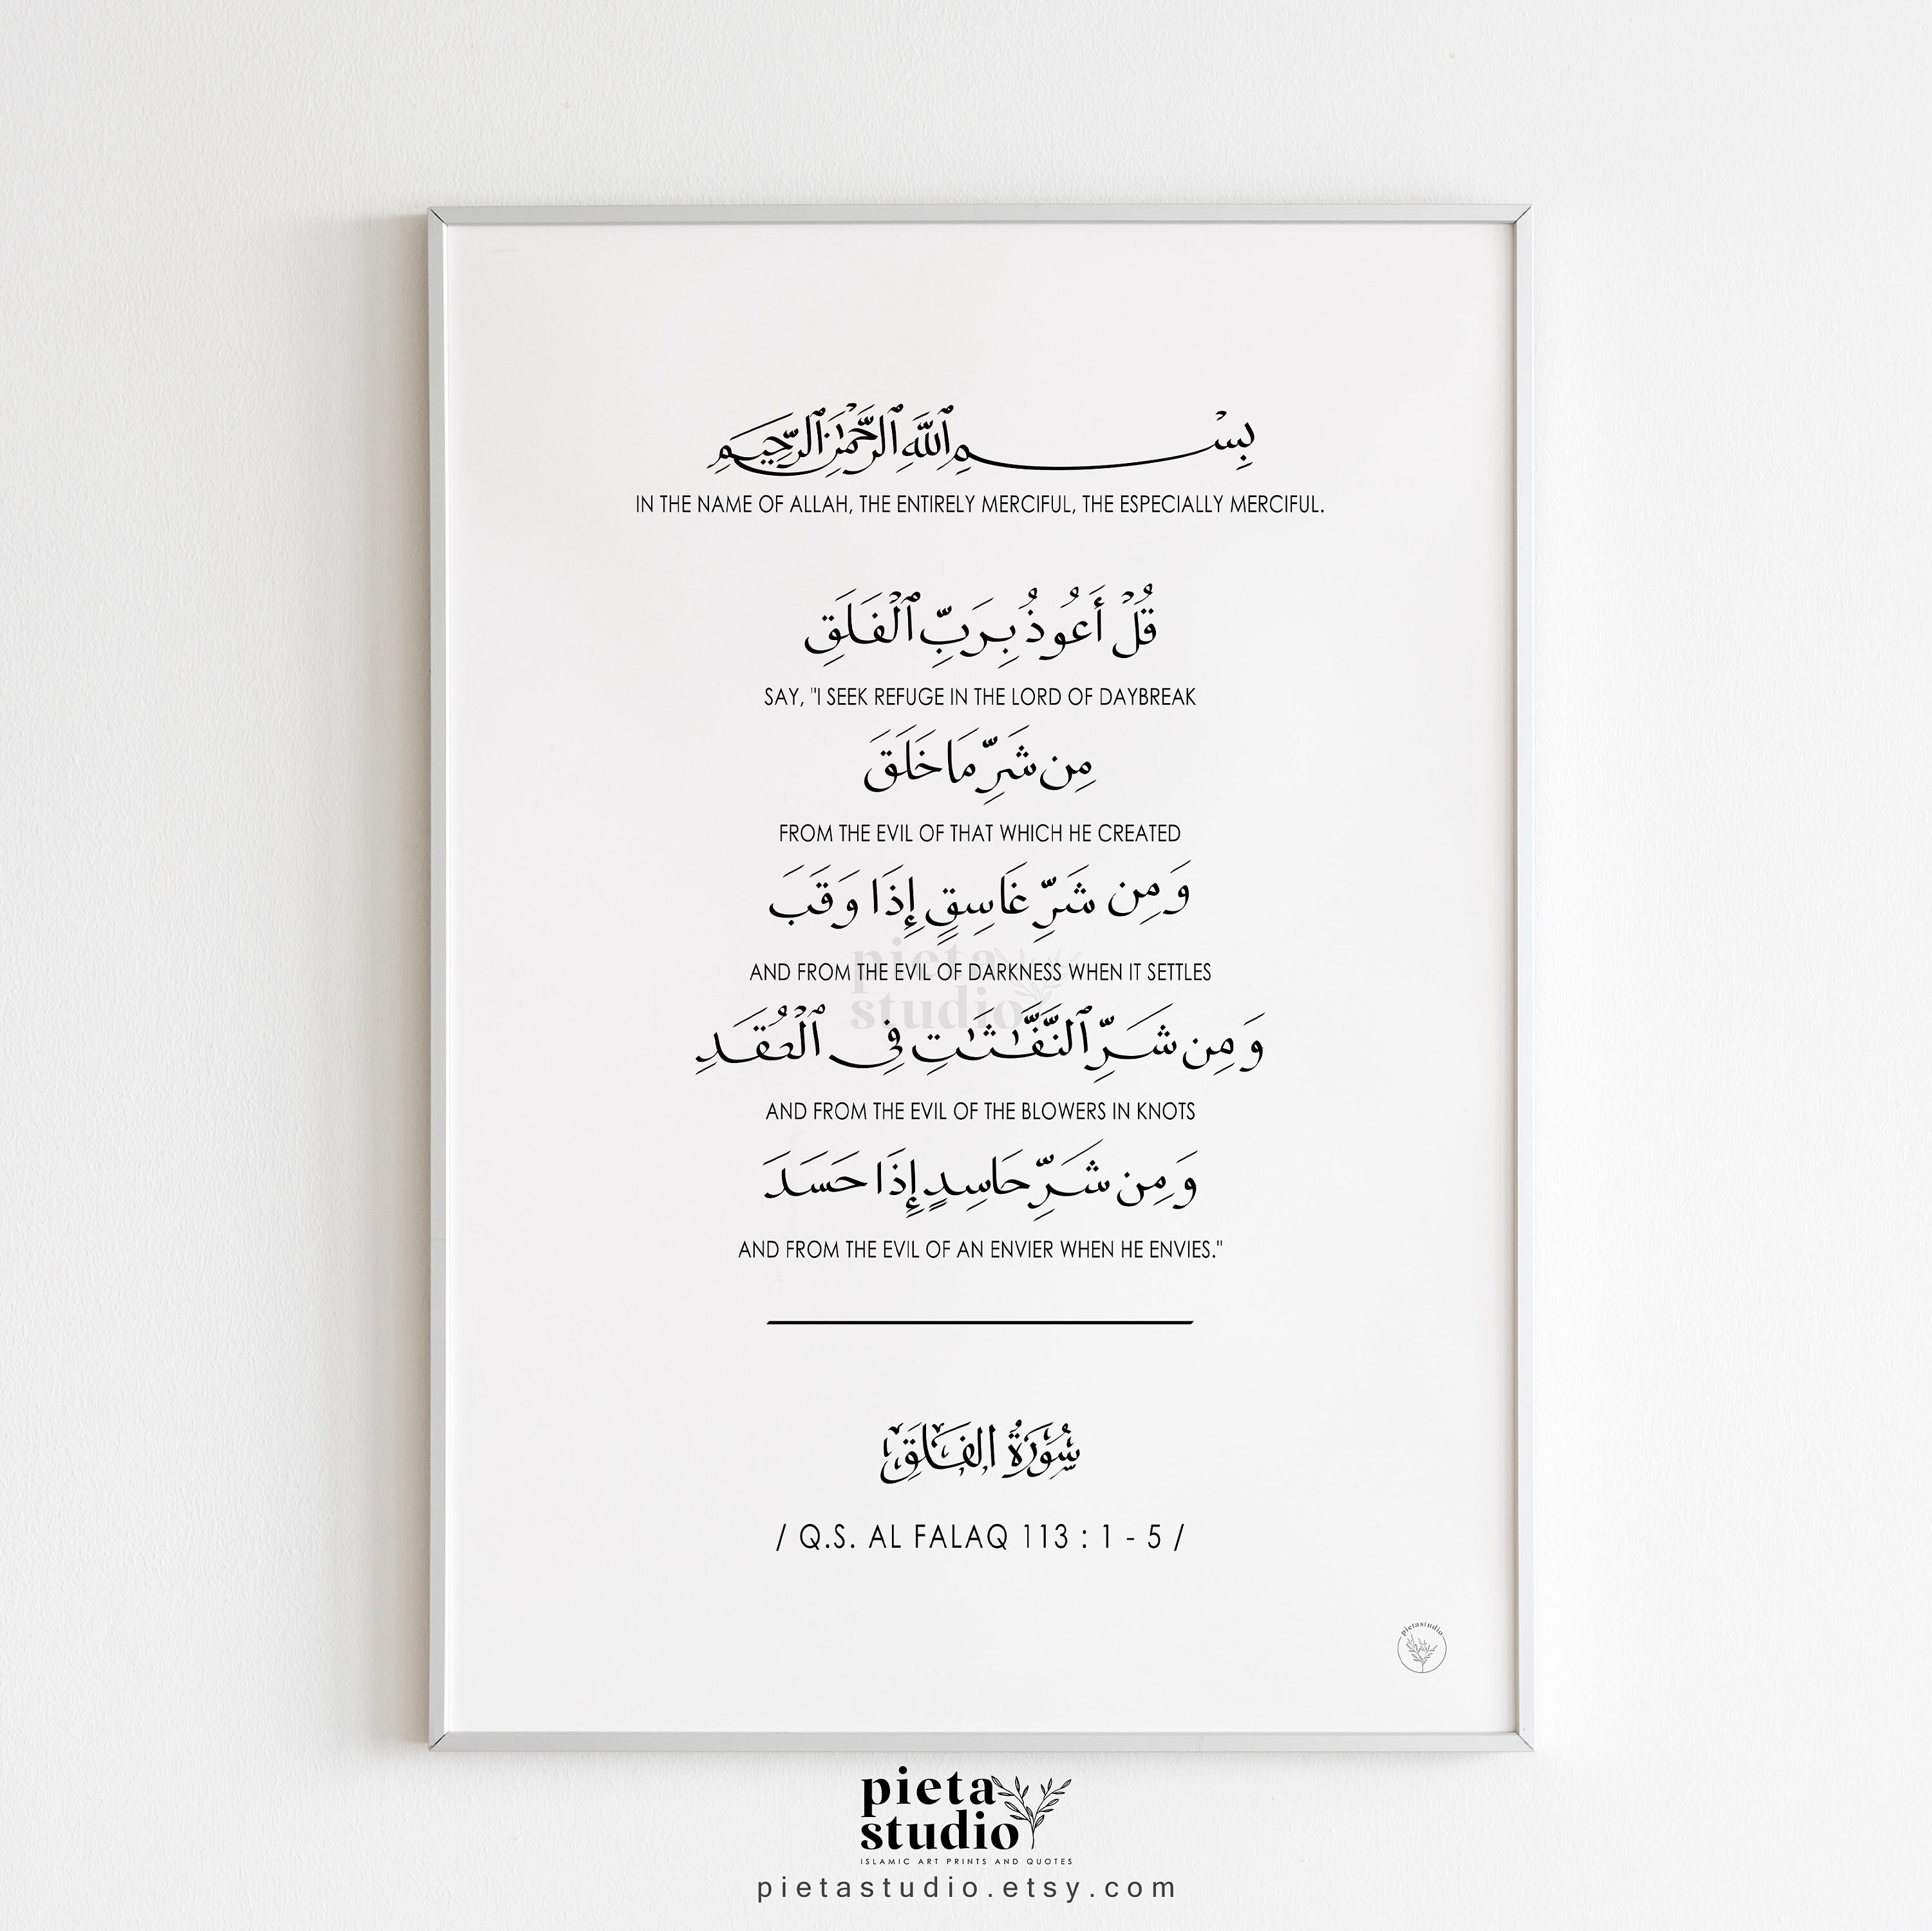 بِسْمِ ٱللَّهِ ٱلرَّحْمَٰنِ ٱلرَّحِيمِ
IN THE NAME OF ALLAH, THE ENTIRELY MERCIFUL, THE ESPECIALLY MERCIFUL.
قُلْ أَعُوذُ بِرَبِّ ٱلْفَلَقِ
SAY, "I SEEK REFUGE IN THE LORD OF DAYBREAK
مِن شَرِّ مَا خَلَقَ
FROM THE EVIL OF THAT WHICH HE CREATED
وَمِن شَرِّ غَاسِقٍ إِذَا وَقَبَ
pieta
AND FROM THE EVIL OF DARKNESS WHEN IT SETTLES
studio
وَمِن شَرِّ ٱلنَّفَّٰثَٰتِ فِى ٱلْعُقَدِ
AND FROM THE EVIL OF THE BLOWERS IN KNOTS
وَمِن شَرِّ حَاسِدٍ إِذَا حَسَدَ
AND FROM THE EVIL OF AN ENVIER WHEN HE ENVIES."
سُورَةُ الفَلَقِ
/ Q.S. AL FALAQ 113 : 1 - 5 /
pietastudio
pieta
studio
ISLAMIC ART PRINTS AND QUOTES
pietastudio.etsy.com